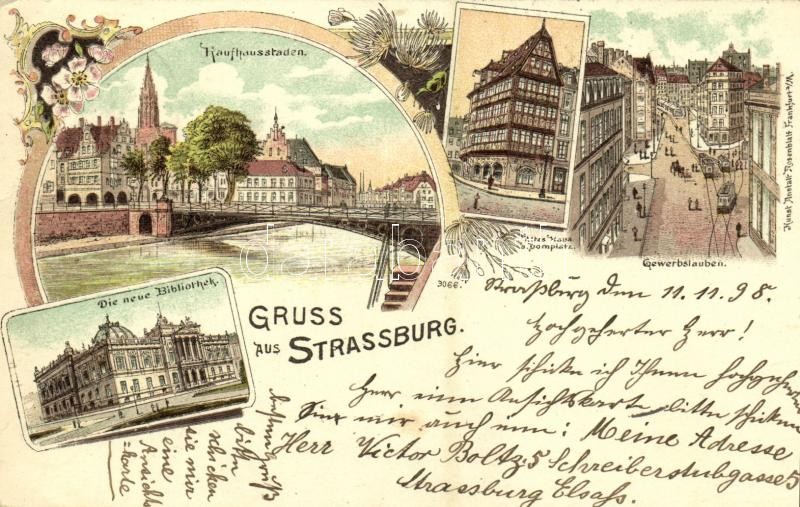 Kaufhausstaden.
Altes Haus
a. Domplatz.
Gewerbslauben.
Kunst Anstalt Rosenblatt Frankfurt a/M.
Die neue Bibliothek.
3066.
GRUSS
AUS STRASSBURG.
Straßburg den 11.11.98.
Hochgeehrter Herr!
Hier schicke ich Ihnen hochgeehrter
Herr eine Ansichtskarte bitte schicken
Sie mir auch eine: Meine Adresse
Herr Victor Boltz: 5 Schreiberstubgasse 5
Strassburg Elsaß.
besten Gruß
bitte
schicken
sie mir
eine
Ansichts
=karte